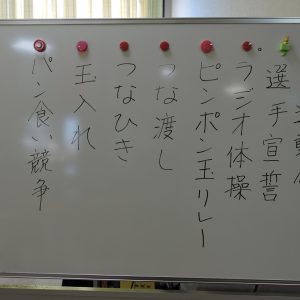 選手宣誓
ラジオ体操
ピンポン玉リレー
つな渡し
つなひき
玉入れ
パン食い競争